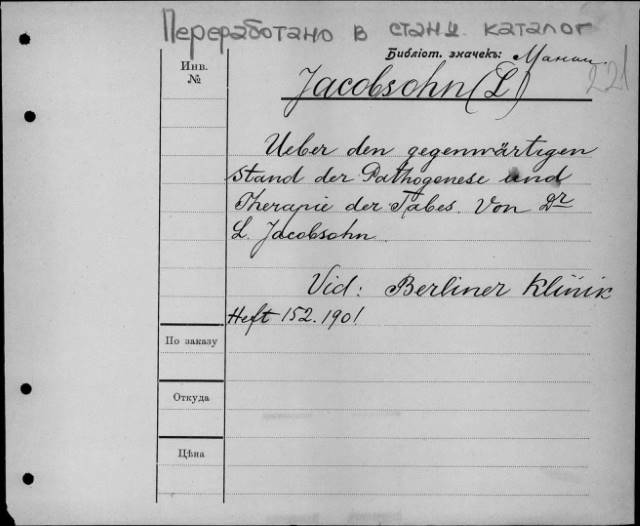 Переработано в станд. каталог
Библіот. значекъ:
221
Инв.
№
Jacobsohn (L)
Ueber den gegenwärtigen
Stand der Pathogenese und
Therapie der Tabes. Von Dr
L. Jacobsohn
Vid: Berliner Klinik
Heft 152. 1901
По заказу
Откуда
Цѣна